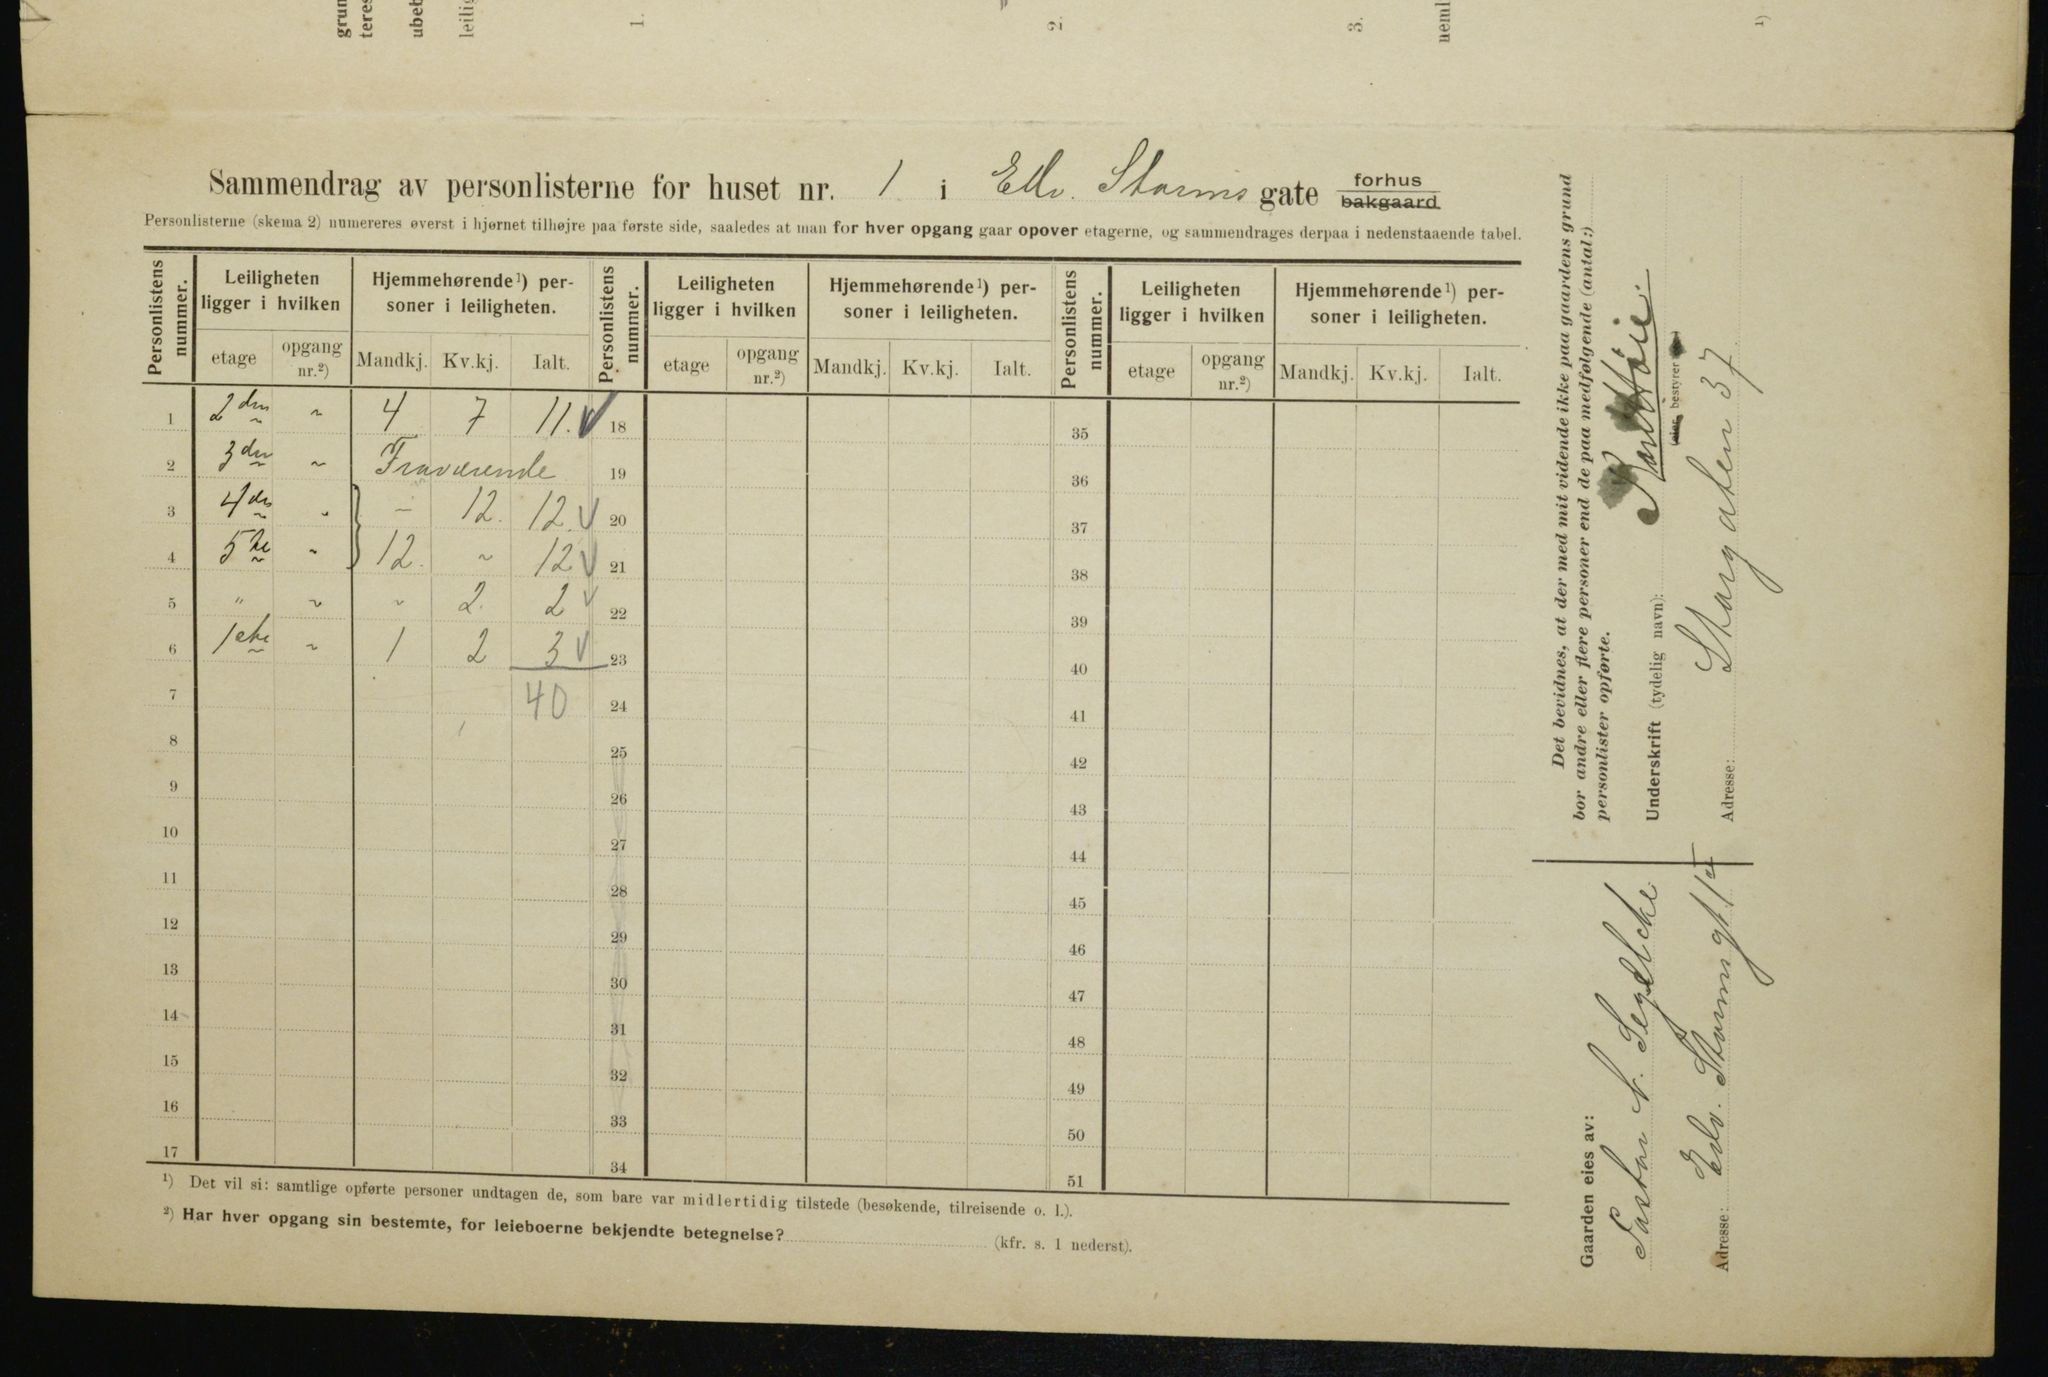 grun
teres
ubeb
leilig
1.
2.
3.
neml
1)
Sammendrag av personlisterne for huset nr. 1 i Edv. Storms gate forhus bakgaard
Personlisterne (skema 2) numereres øverst i hjørnet tilhøjre paa første side, saaledes at man for hver opgang gaar opover etagerne, og sammendrages derpaa i nedenstaaende tabel.
Personlistens nummer. Leiligheten ligger i hvilken Hjemmehørende¹) personer i leiligheten. Personlistens nummer. Leiligheten ligger i hvilken Hjemmehørende¹) personer i leiligheten. Personlistens nummer. Leiligheten ligger i hvilken Hjemmehørende¹) personer i leiligheten.
etage opgang nr.²) Mandkj. Kv.kj. Ialt. etage opgang nr.²) Mandkj. Kv.kj. Ialt. etage opgang nr.²) Mandkj. Kv.kj. Ialt.
1 2den " 4 7 11. 18 35
2 3den " Fraværende 19 36
3 4de " – 12. 12. 20 37
4 5te " 12. " 12 21 38
5 " " " 2. 2 22 39
6 1ste " 1 2 3 23 40
7 40 24 41
8 25 42
9 26 43
10 27 44
11 28 45
12 29 46
13 30 47
14 31 48
15 32 49
16 33 50
17 34 51
¹) Det vil si: samtlige opførte personer undtagen de, som bare var midlertidig tilstede (besøkende, tilreisende o. l.).
²) Har hver opgang sin bestemte, for leieboerne bekjendte betegnelse? (kfr. s. 1 nederst).
Det bevidnes, at der med mit vidende ikke paa gaardens grund
bor andre eller flere personer end de paa medfølgende (antal:)
personlister opførte.
Underskrift (tydelig navn):
(eier, bestyrer
Adresse: Storgaten 37
Gaarden eies av:
Pastor N. Segelcke
Adresse: Edv. Storms gt. 1